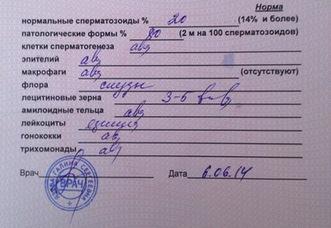 Норма
нормальные сперматозоиды % 20 (14% и более)
патологические формы % 80 (2 м на 100 сперматозоидов)
клетки сперматогенеза авз
эпителий авз
макрофаги авз (отсутствуют)
флора
лецитиновые зерна 3-5
амилоидные тельца авз
лейкоциты
гонококки авз
трихомонады авз
Врач ВРАЧ Дата 6.06.14